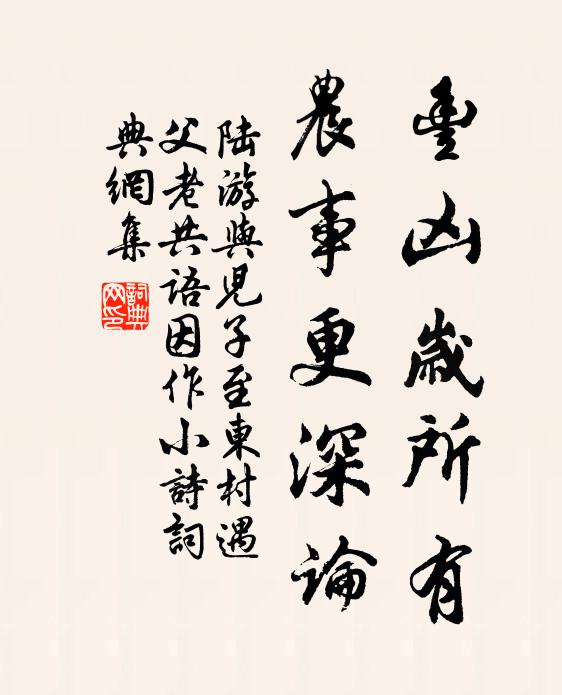 豐凶歲所有
農事更深論
陸游與兒子至東村遇
父老共語因作小詩詞
典網集
詞典
网印